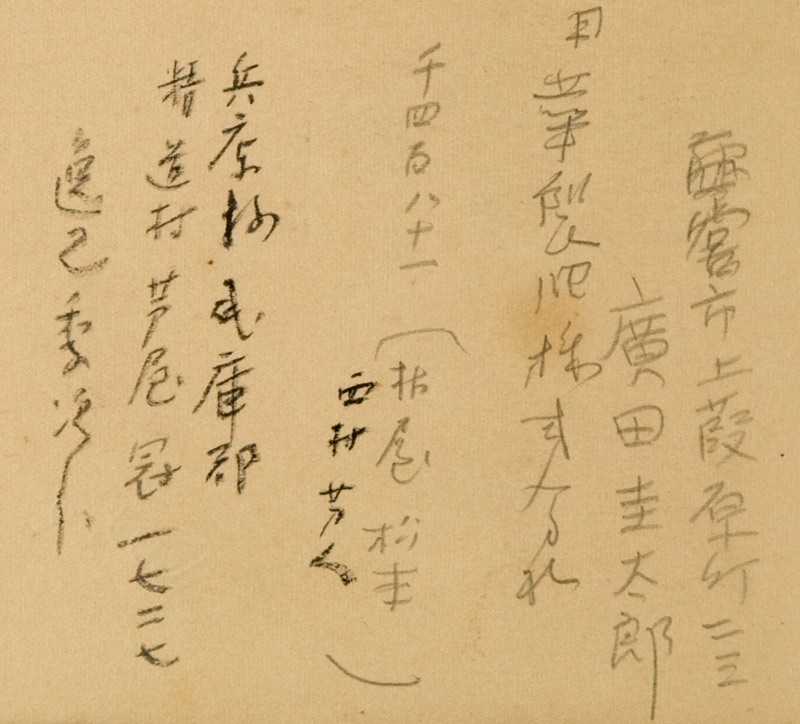 市上葭原町二三
廣田圭太郎
日華製肥株式会社
千四百八十一
(枯尾 松本)
西村芳
兵庫縣武庫郡
精道村芦屋 一七二七
逸己季